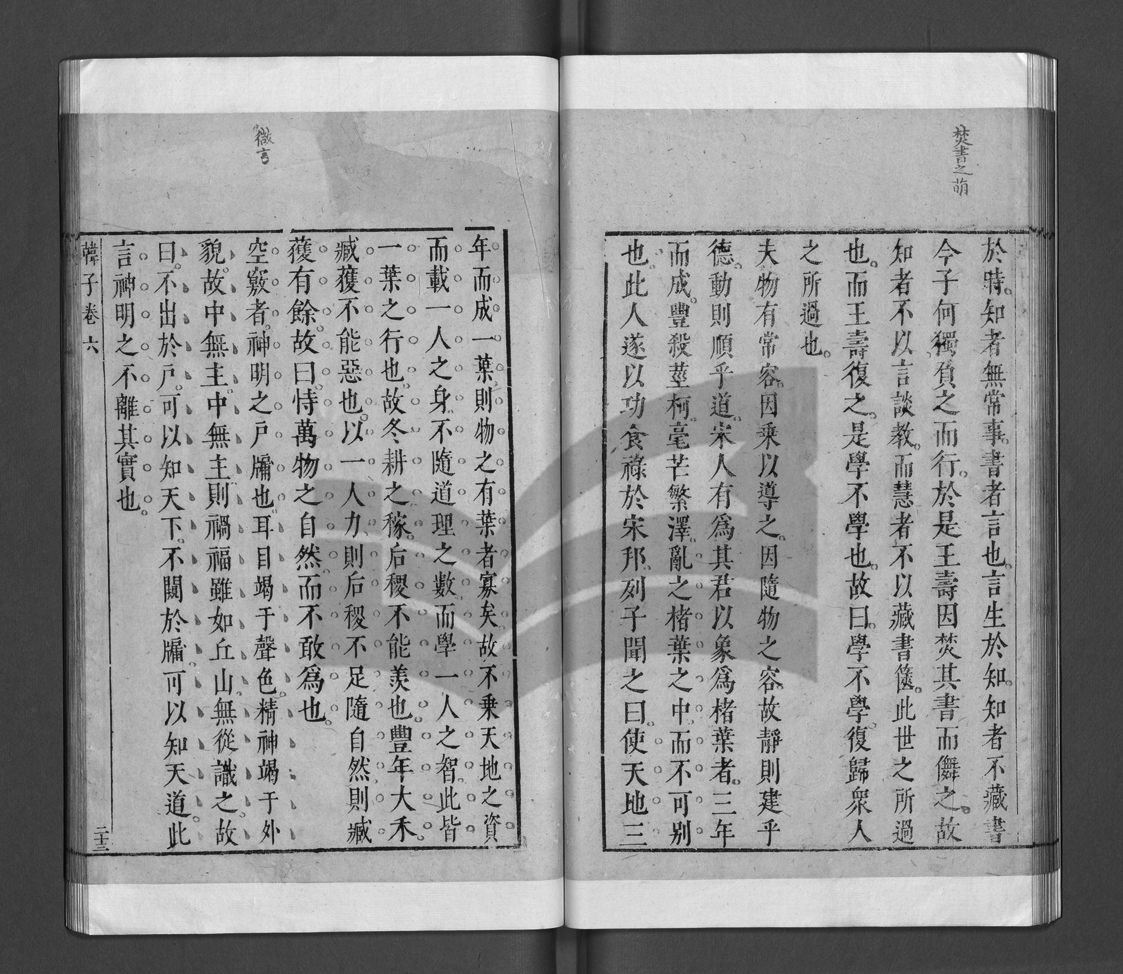 焚書之萌
於時。知者無常事。書者言也。言生於知。知者不藏書
今子何獨負之而行。於是王壽因焚其書而儛之。故
知者不以言談教。而慧者不以藏書篋。此世之所過
也。而王壽復之。是學不學也。故曰。學不學。復歸衆人
之所過也。
夫物有常容。因乘以導之。因隨物之容。故靜則建乎
德。動則順乎道。宋人有爲其君以象爲楮葉者。三年
而成。豐殺莖柯。毫芒繁澤。亂之楮葉之中。而不可别
也。此人遂以功食祿於宋邦。列子聞之曰。使天地三
年而成一葉。則物之有葉者寡矣。故不乘天地之資
而載一人之身。不隨道理之數而學一人之智。此皆
一葉之行也。故冬耕之稼。后稷不能羨也。豐年大禾
臧獲不能惡也。以一人力。則后稷不足。隨自然。則臧
獲有餘。故曰。恃萬物之自然而不敢爲也。
微言
空竅者。神明之戶牖也。耳目竭于聲色。精神竭于外
貌。故中無主。中無主。則禍福雖如丘山。無從識之。故
曰。不出於戶。可以知天下。不闚於牖。可以知天道。此
言神明之不離其實也。
韓子卷六
二十三